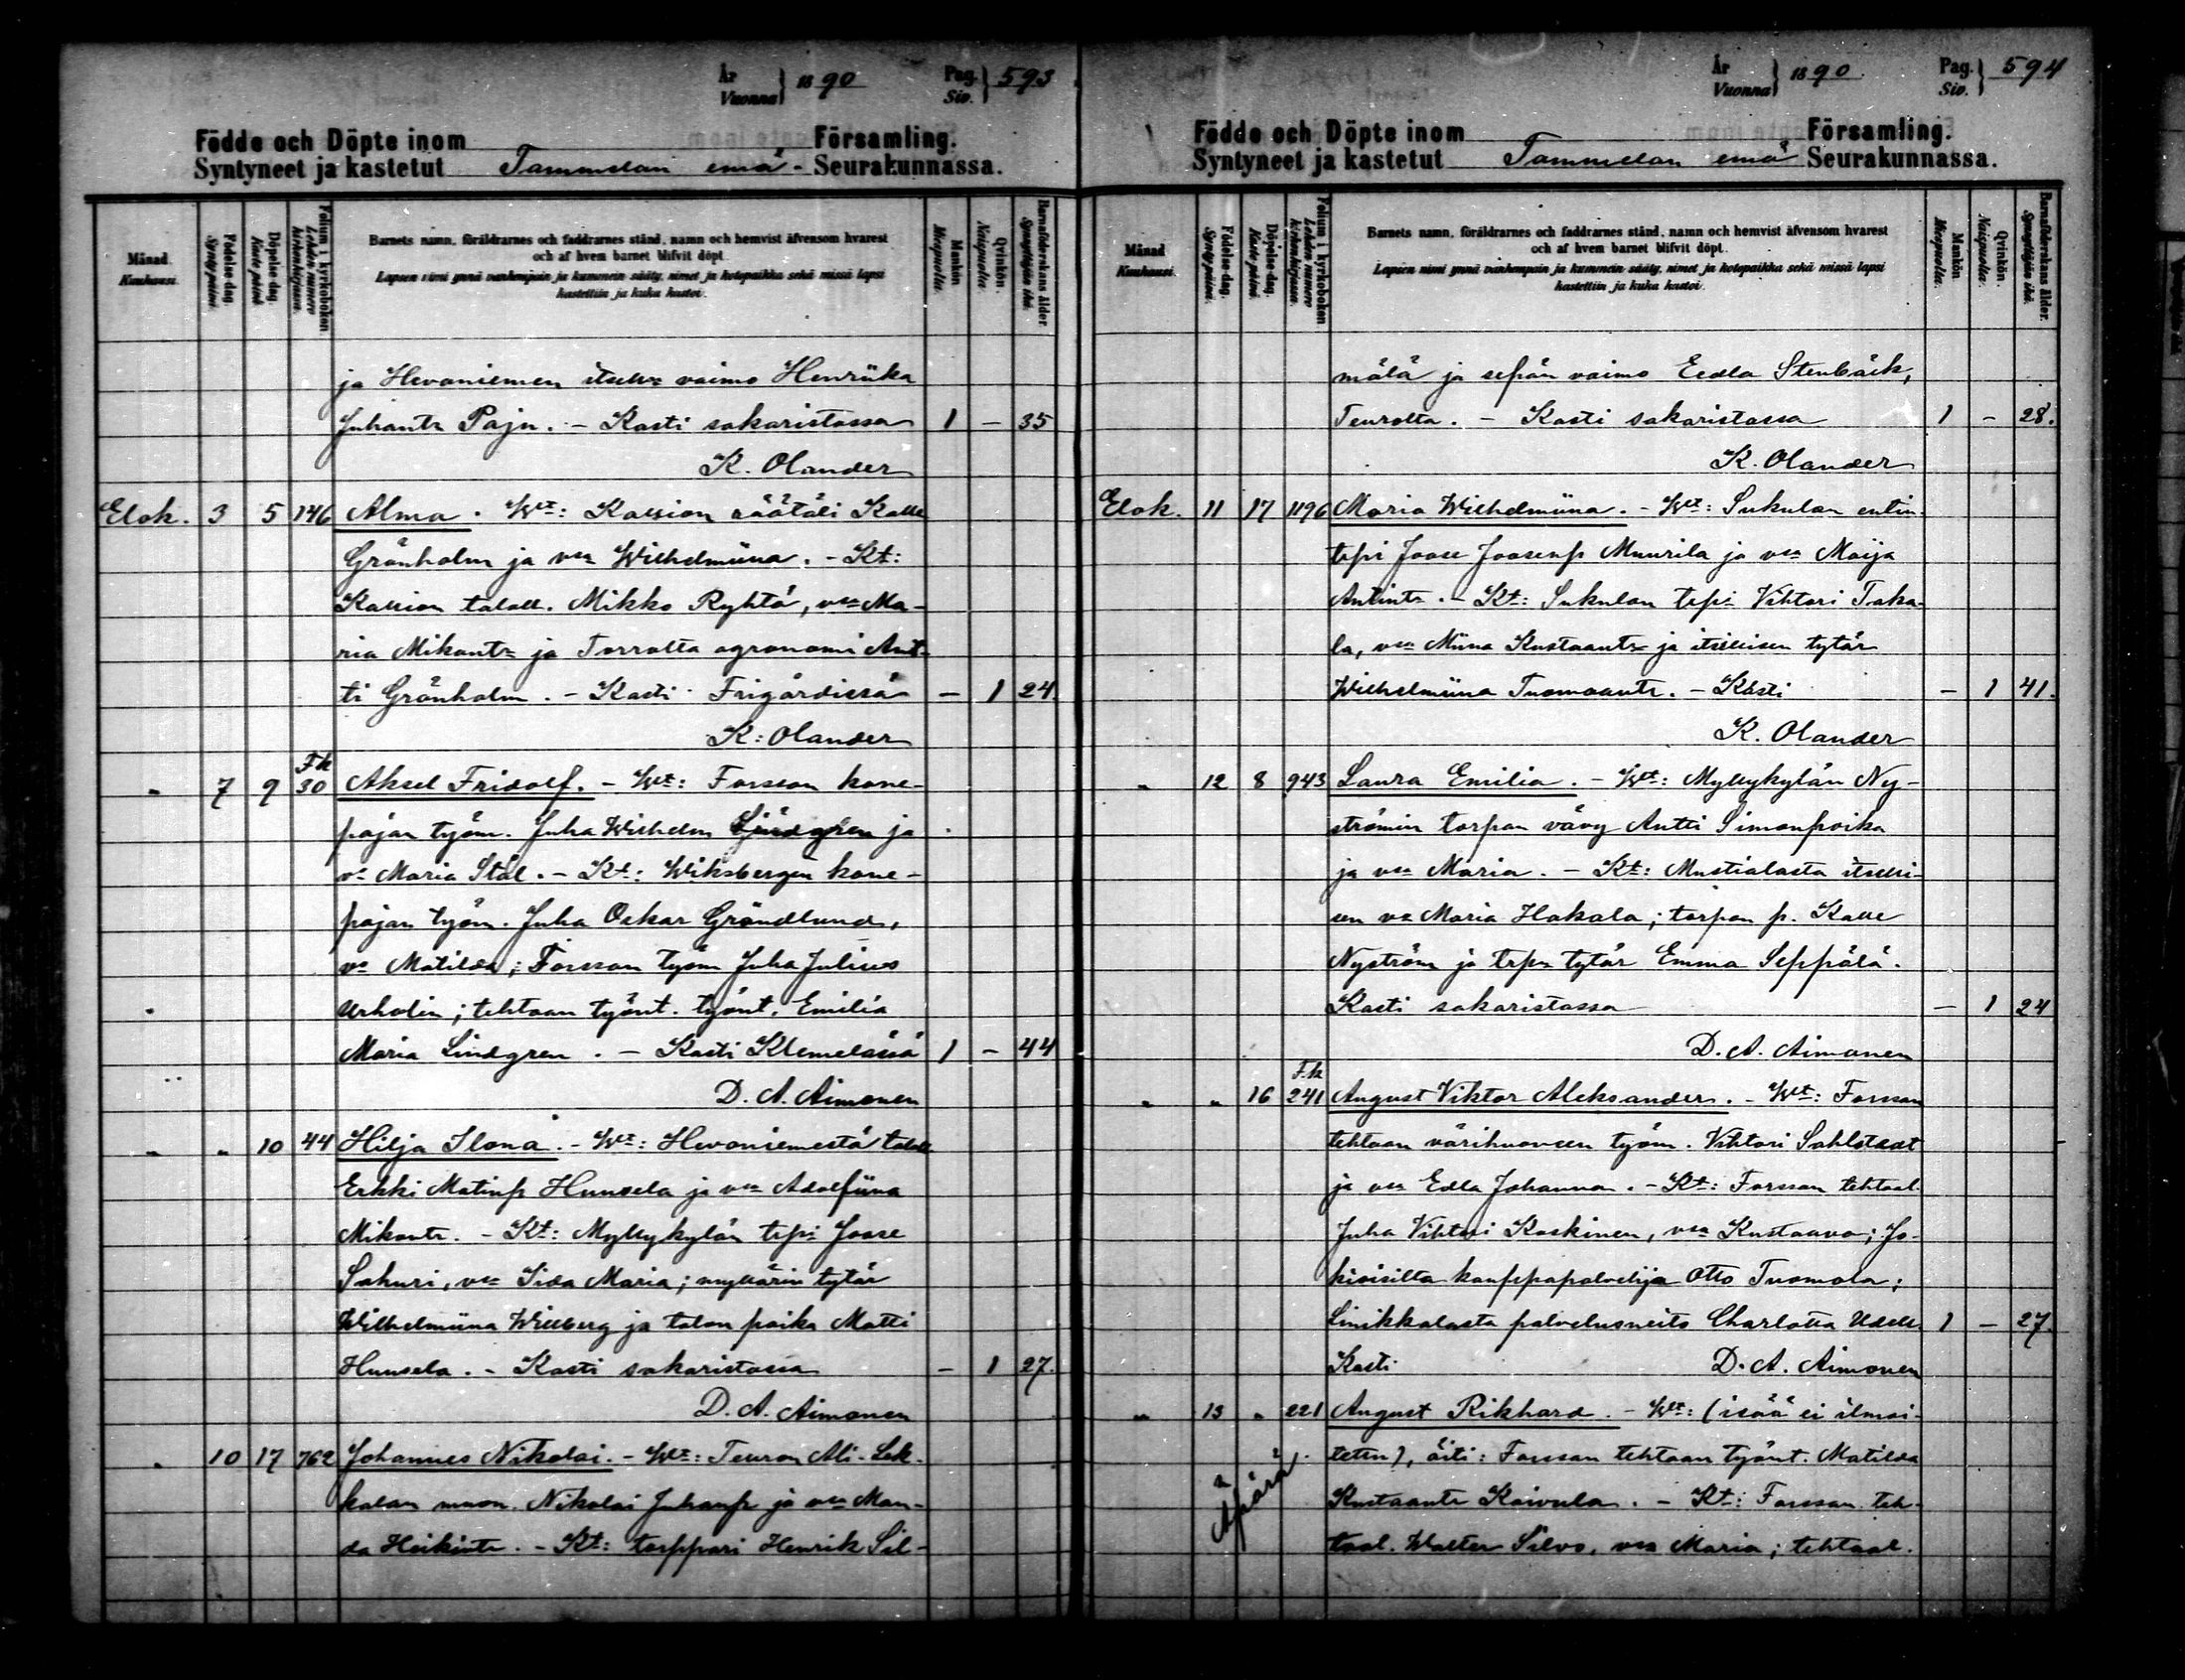 År
Vuonna } 1890
Pag.
Siv. } 593
Födde och Döpte inom Församling.
Syntyneet ja kastetut Tammelan emä- Seurakunnassa.
Månad. Kuukausi.
Födelse-dag. Synty-päivä.
Döpelse-dag. Kaste-päivä.
Folium i kyrkoboken. Lehden numero kirkonkirjassa.
Barnets namn, föräldrarnes och faddrarnes stånd, namn och hemvist äfvensom hvarest
och af hvem barnet blifvit döpt.
Lapsen nimi ynnä vanhempain ja kummein sääty, nimet ja kotopaikka sekä missä lapsi
kastettiin ja kuka kastoi.
Mankön. Miespuolia.
Qvinkön. Naispuolia.
Barnaföderskans ålder. Synnyttäjän ikä.
ja Hevoniemen itsell. vaimo Henriika
Juhantr Paju. - Kasti sakaristassa 1 - 35
K. Olander
Elok. 3 5 146 Alma. - Wt: Kallion räätäli Kalle
Grönholm ja vsa Wilhelmiina. - Kt:
Kallion taloll. Mikko Ryhtä, vsa Ma-
ria Mikontr ja Torrolta agronomi Ant-
ti Grönholm. - Kasti Frigårdissa - 1 24.
K. Olander
" 7 9 Fk 30 Aksel Fridolf. - Wt: Forssan kone-
pajan työm. Juha Wilhelm Lindgren ja
vo Maria Stål. - Kt: Wiksbergin kone-
pajan työm. Juha Oskar Gröndlund,
vo Matilda; Forssan työm Juha Julius
Urholin; tehtaan työnt. työnt. Emilia
Maria Lindgren. - Kasti Klemelässä 1 - 44
D. A. Aimonen
" " 10 44 Hilja Ilona. - Wt: Hevoniemestä taloll
Erkki Matinp Hunsela ja vsa Adolfiina
Mikontr. - Kt: Myllykylän trp: Joose
Sakuri, vsa Iida Maria; myllärin tytär
Wilhelmiina Willberg ja talon poika Matti
Hunsela. - Kasti sakaristassa - 1 27.
D. A. Aimonen
" 10 17 762 Johannes Nikolai. - Wt: Teuron Ali-Lek-
kalan muon. Nikolai Juhanp ja vsa Man-
da Heikintr. - Kt: torppari Henrik Sil-
År
Vuonna } 1890.
Pag.
Siv. } 594
Födde och Döpte inom Församling.
Syntyneet ja kastetut Tammelan emä Seurakunnassa.
Månad. Kuukausi.
Födelse-dag. Synty-päivä.
Döpelse-dag. Kaste-päivä.
Folium i kyrkoboken. Lehden numero kirkonkirjassa.
Barnets namn, föräldrarnes och faddrarnes stånd, namn och hemvist äfvensom hvarest
och af hvem barnet blifvit döpt.
Lapsen nimi ynnä vanhempain ja kummein sääty, nimet ja kotopaikka sekä missä lapsi
kastettiin ja kuka kastoi.
Mankön. Miespuolia.
Qvinkön. Naispuolia.
Barnaföderskans ålder. Synnyttäjän ikä.
mälä ja sepän vaimo Eedla Stenbäck,
Teurolta. - Kasti sakaristassa 1 - 28.
K. Olander
Elok. 11 17 1196 Maria Wilhelmiina. - Wt: Sukulan entin.
trpi Joose Joosenp Muurila ja vsa Maija
Antintr. - Kt: Sukulan trpi Vihtori Taka-
la, vsa Miina Kustaantr ja itsellisen tytär
Wilhelmiina Tuomaantr. - Kasti - 1 41.
K. Olander
" 12 8 943 Laura Emilia. - Wt: Myllykylän Ny-
strömin torpan vävy Antti Simonpoika
ja vsa Maria. - Kt: Mustialasta itselli-
sen va Maria Hakala; torpan p. Kalle
Nyström ja trpn tytär Emma Seppälä.
Kasti sakaristassa - 1 24
D. A. Aimonen
" " 16 F.k 241 August Viktor Aleksander. - Wt: Forssan
tehtaan värihuoneen työm. Vihtori Sahlstedt
ja vsa Edla Johanna. - Kt: Forssan tehtaal.
Juha Vihtori Koskinen, vsa Kustaava; Jo-
kioisilta kauppapalvelija Otto Tuomola;
Linikkalasta palvelusneito Charlotta Udell. 1 - 27.
Kasti D. A. Aimonen
" 13 " 221 August Rikhard. - Wt: (isää ei ilmoi-
tettu), äiti: Forssan tehtaan työnt. Matilda
Kustaantr Koivula. - Kt: Forssan teh-
taal. Walter Silvo, vsa Maria; tehtaal.
Äpärä